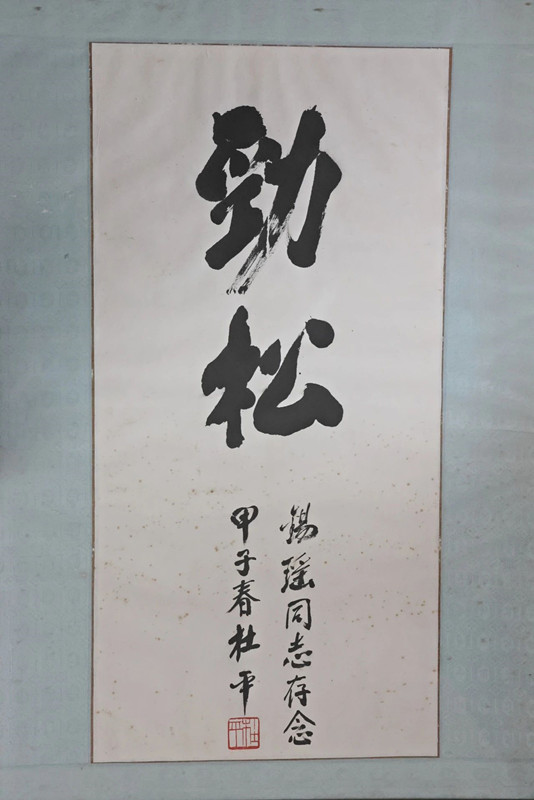 劲松
锡瑶同志存念
甲子春杜平
杜平